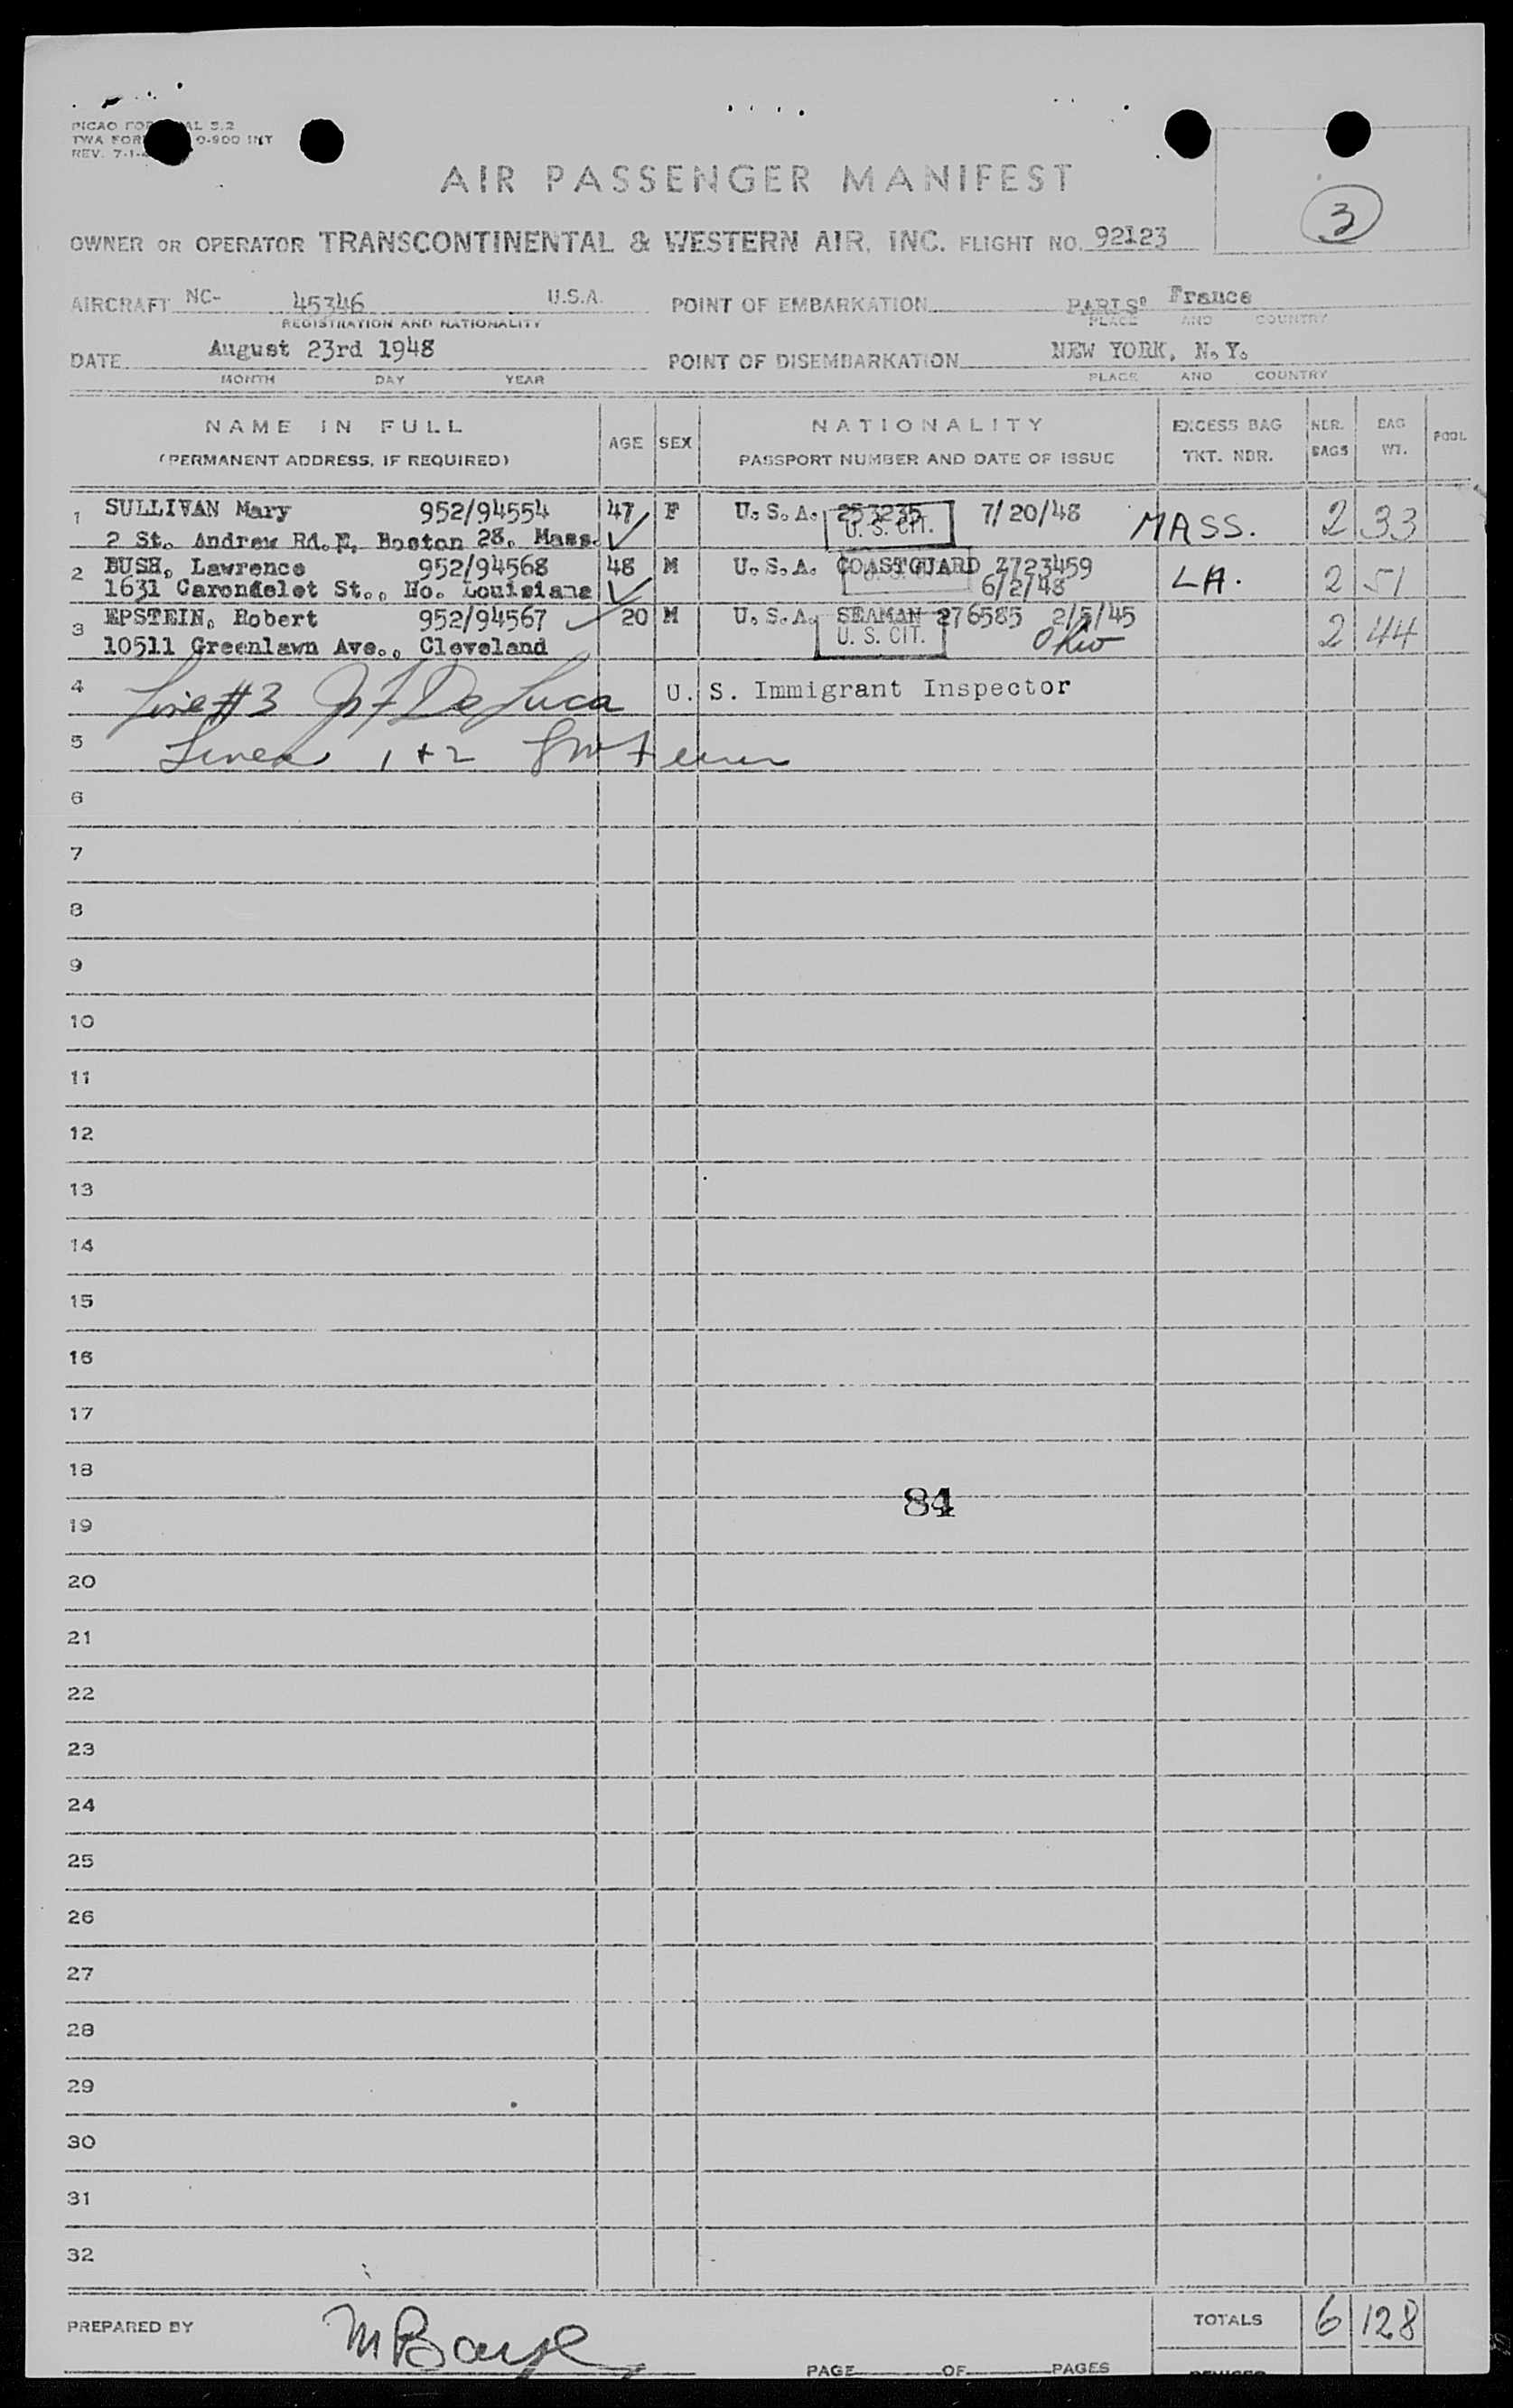 PICAO FOR AL 5.2
TWA FOR 0-900 INT
REV. 7-1-4
AIR PASSENGER MANIFEST
3
OWNER OR OPERATOR TRANSCONTINENTAL & WESTERN AIR, INC. FLIGHT NO. 92123
AIRCRAFT NC- 45346 U.S.A. POINT OF EMBARKATION PARIS, France
REGISTRATION AND NATIONALITY PLACE AND COUNTRY
DATE August 23rd 1948 POINT OF DISEMBARKATION NEW YORK, N.Y.
MONTH DAY YEAR PLACE AND COUNTRY
NAME IN FULL AGE SEX NATIONALITY EXCESS BAG NBR. BAG POOL
(PERMANENT ADDRESS, IF REQUIRED) PASSPORT NUMBER AND DATE OF ISSUE TKT. NBR. BAGS WT.
1 SULLIVAN Mary 952/94554 47 F U.S.A. 253235 7/20/48 MASS. 2 33
U. S. CIT.
2 St. Andrew Rd.E, Boston 28, Mass.
2 BUSH, Lawrence 952/94568 48 M U.S.A. COASTGUARD Z723459 LA. 2 51
1631 Carondelet St., No. Louisiana 6/2/48
3 EPSTEIN, Robert 952/94567 20 M U.S.A. SEAMAN 276585 2/5/45 2 44
10511 Greenlawn Ave., Cleveland U. S. CIT. Ohio
4 Line #3 De Luca U. S. Immigrant Inspector
5 Lines 1+2
6
7
8
9
10
11
12
13
14
15
16
17
18
84
19
20
21
22
23
24
25
26
27
28
29
30
31
32
PREPARED BY TOTALS 6 128
PAGE OF PAGES